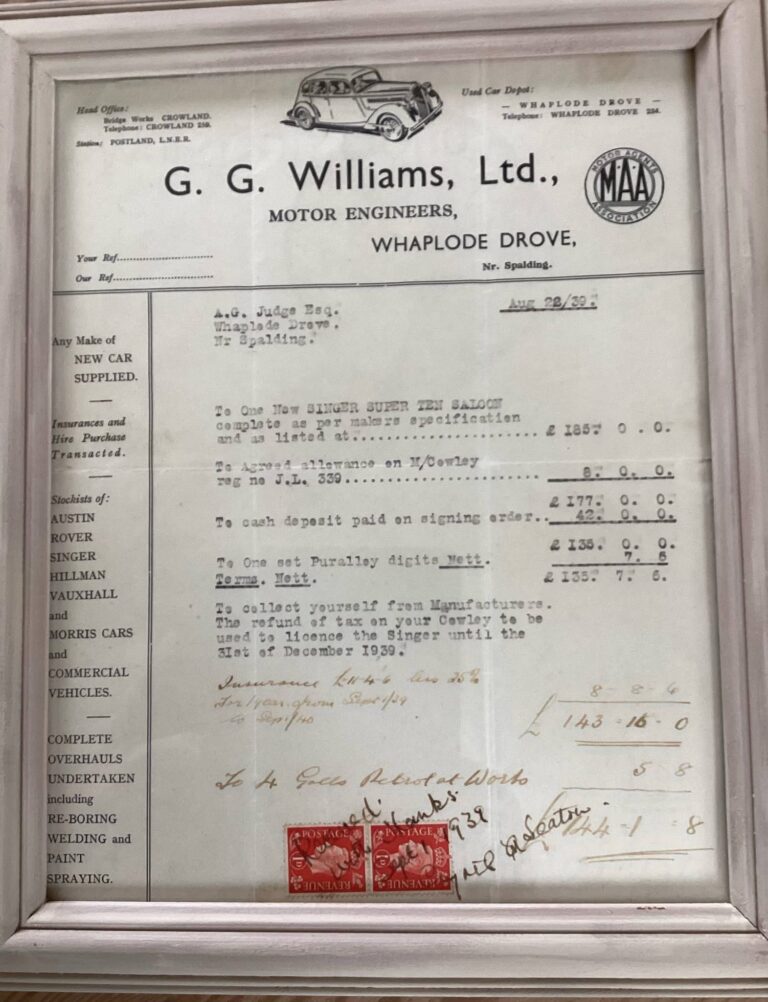 Head Office:
Bridge Works CROWLAND.
Telephone: CROWLAND 259.
Station: POSTLAND, L.N.E.R.
Used Car Depot:
— WHAPLODE DROVE —
Telephone: WHAPLODE DROVE 224.
G. G. Williams, Ltd.,
MOTOR ENGINEERS,
WHAPLODE DROVE,
Nr. Spalding.
MOTOR AGENTS
MAA
ASSOCIATION
Your Ref
Our Ref
A.G. Judge Esq.
Whaplode Drove.
Nr Spalding.
Aug 22/39.
Any Make of
NEW CAR
SUPPLIED.
Insurances and
Hire Purchase
Transacted.
Stockists of:
AUSTIN
ROVER
SINGER
HILLMAN
VAUXHALL
and
MORRIS CARS
and
COMMERCIAL
VEHICLES.
COMPLETE
OVERHAULS
UNDERTAKEN
including
RE-BORING
WELDING and
PAINT
SPRAYING.
To One New SINGER SUPER TEN SALOON
complete as per makers specification
and as listed at.................... £ 185. 0. 0.
To Agreed allowance on M/Cowley
reg no J.L. 339..................... 8. 0. 0.
£ 177. 0. 0.
To cash deposit paid on signing order.. 42. 0. 0.
£ 135. 0. 0.
To One set Puralley digits Nett. 7. 6
Terms. Nett. £ 135. 7. 6.
To collect yourself from Manufacturers.
The refund of tax on your Cowley to be
used to licence the Singer until the
31st of December 1939.
Insurance £11-4-6 less 25%
For 1 year from Sept 1/39
to Sep. 1/40
8 - 8 - 6
£ 143 - 16 - 0
To 4 Galls Petrol at Works 5 8
£ 144 - 1 - 8
Received
with thanks.
Sept 1 1939
POSTAGE POSTAGE
REVENUE REVENUE